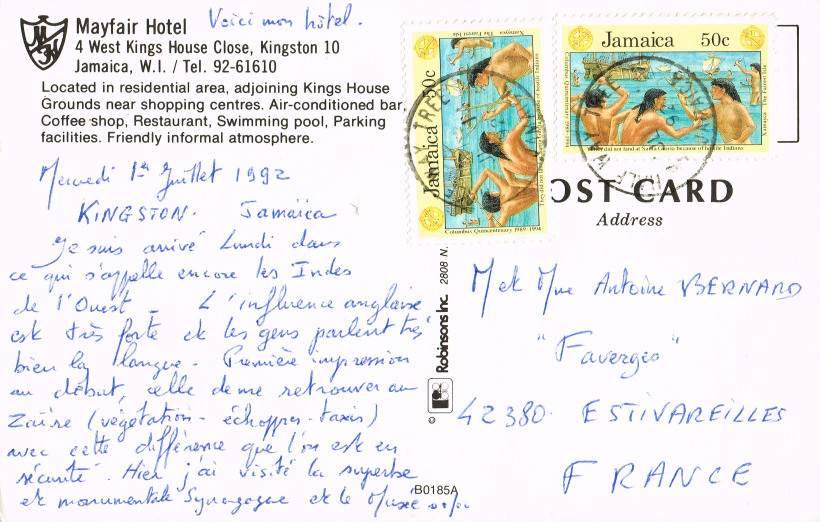 Mayfair Hotel
Voici mon hôtel.
4 West Kings House Close, Kingston 10
Jamaica, W.I. / Tel. 92-61610
Located in residential area, adjoining Kings House
Grounds near shopping centres. Air-conditioned bar,
Coffee shop, Restaurant, Swimming pool, Parking
facilities. Friendly informal atmosphere.
Mercredi 1er Juillet 1992
KINGSTON. Jamaïca
Je suis arrivé Lundi dans
ce qui s'appelle encore les Indes
de l'Ouest - L'influence anglaise
est très forte et les gens parlent très
bien la langue. Première impression
au début, celle de me retrouver au
Zaïre (végétation - échoppes - taxis)
avec cette différence que l'on est en
sécurité. Hier j'ai visité la superbe
et monumentale Synagogue et le Musée
Jamaica 50c
Columbus Quincentenary 1989-1994
Jamaica 50c
They did not land at Santa Gloria because of hostile Indians
POST CARD
Address
M et Mme Antoine BERNARD
"Faverges"
42380. ESTIVAREILLES
FRANCE
© Robinsons Inc. 2808 N.
B0185A